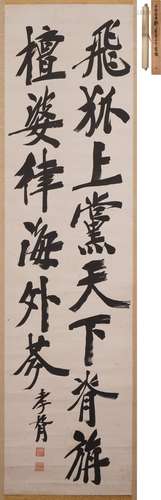 飛狐上黨天下脊旃
檀婆律海外芬 孝胥